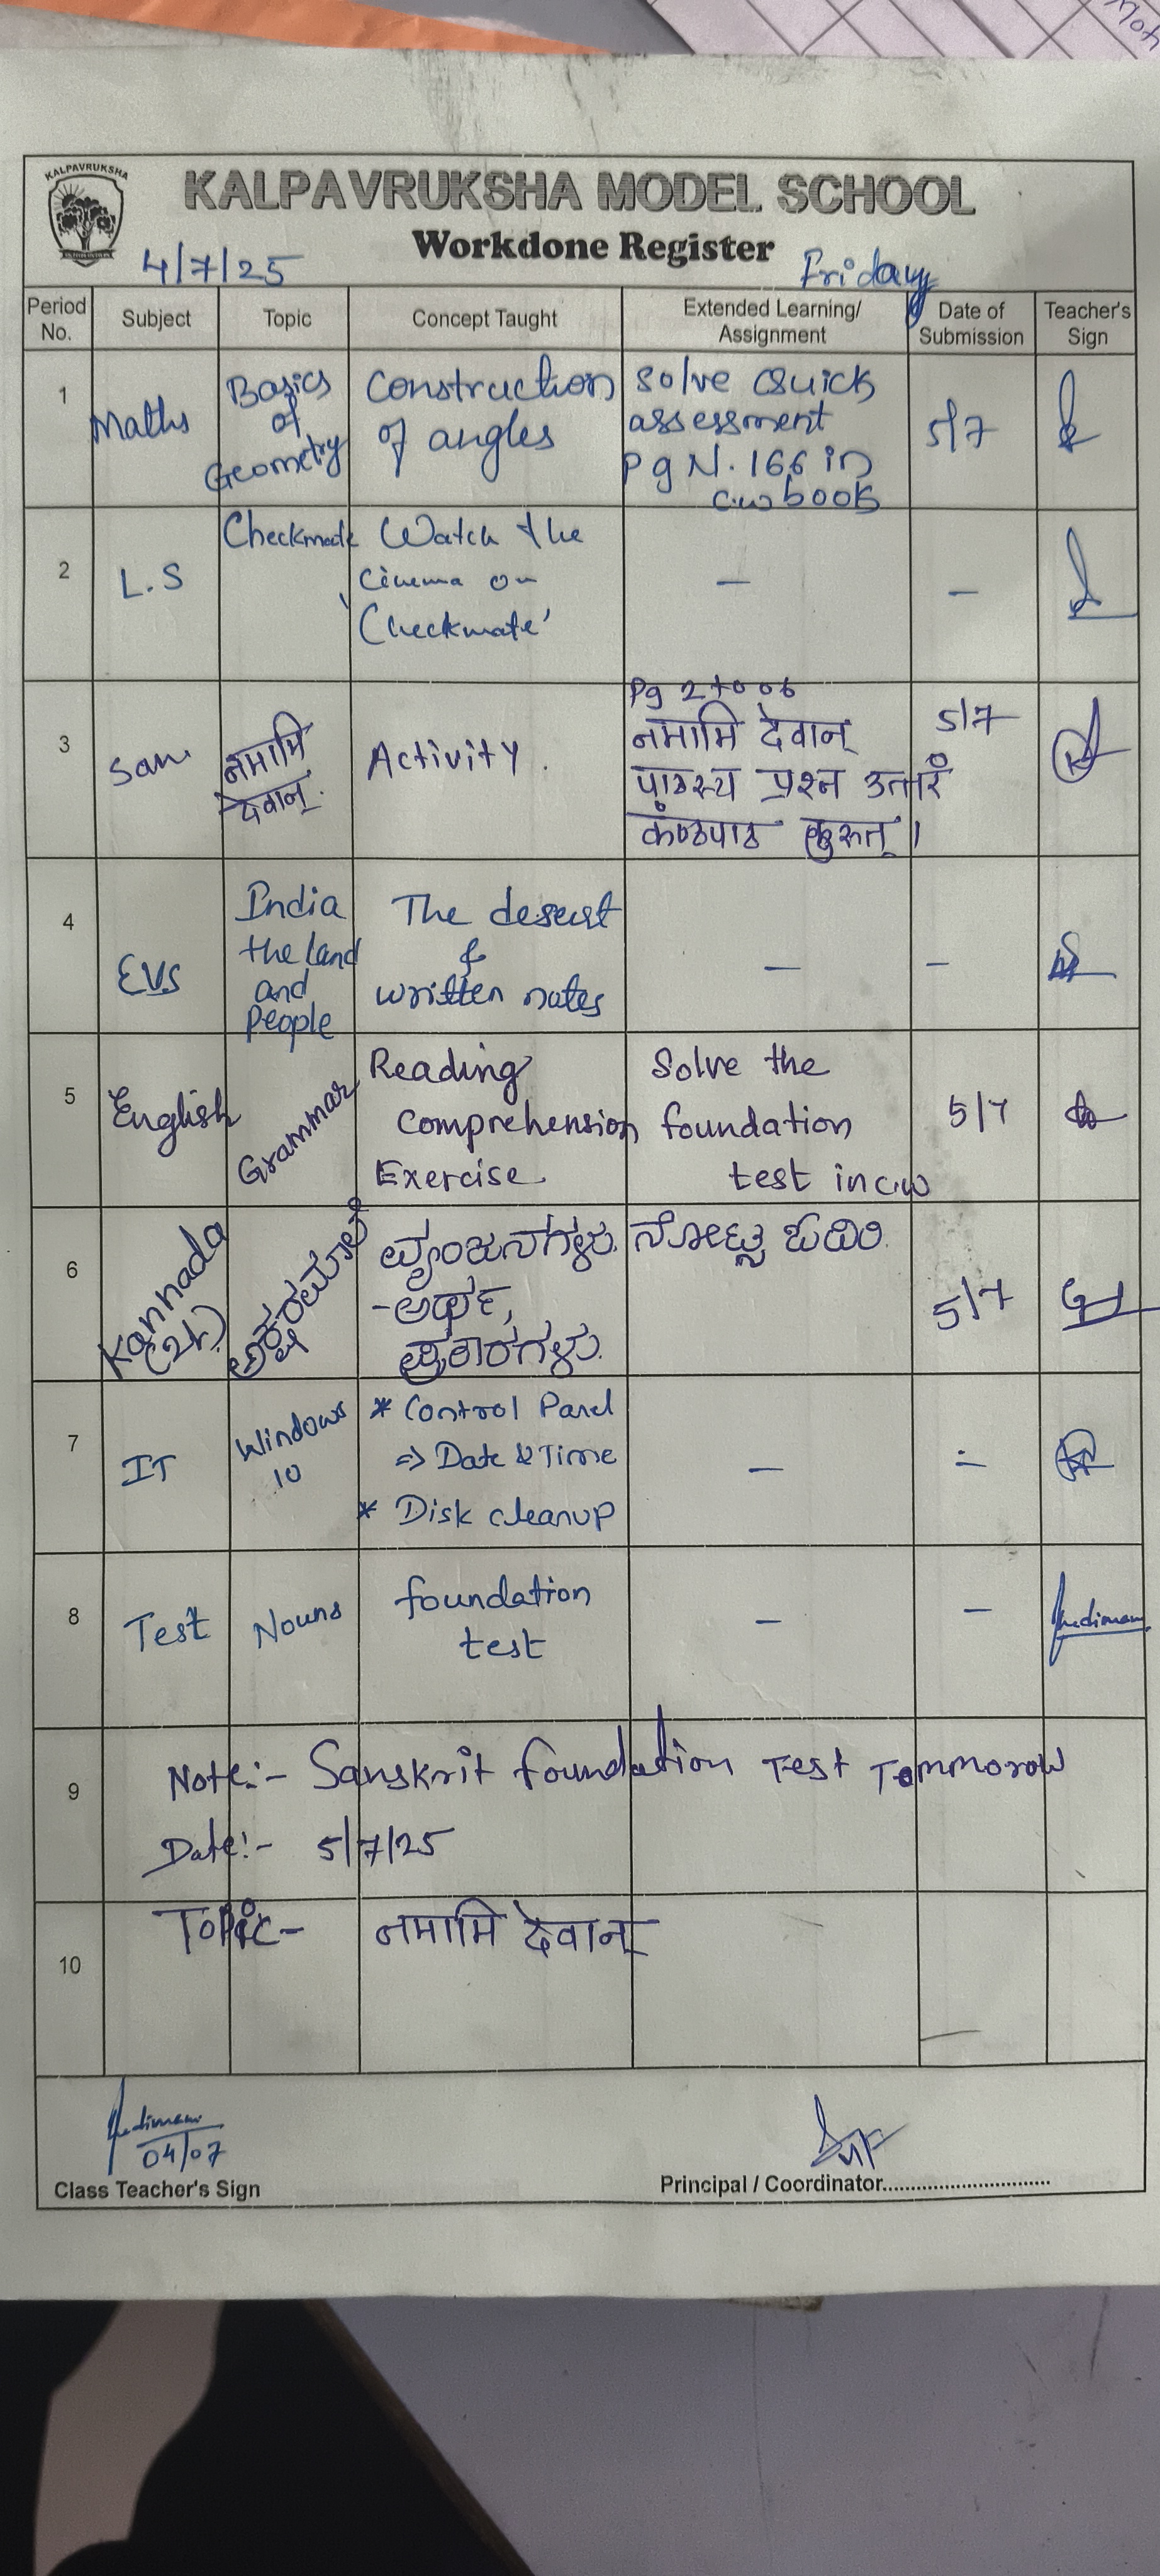 KALPAVRUKSHA
KALPAVRUKSHA MODEL SCHOOL
Workdone Register
4/7/25
Friday
Period No.
Subject
Topic
Concept Taught
Extended Learning/
Assignment
Date of
Submission
Teacher's
Sign
1
Maths
Basics
of
Geometry
Construction
of angles
Solve Quick
assessment
Pg N. 166 in
cw book
5/7
2
L.S
Checkmate
Watch the
cinema on
'Checkmate'
—
—
3
San.
नमामि
देवान्.
Activity.
Pg 2 to 6
नमामि देवान्
पाठस्य प्रश्न उत्तरं
कंण्ठपाठ कुरुत्।
5/7
4
EVS
India
the land
and
People
The desert
&
written notes
—
—
5
English
Grammar
Reading
comprehension
Exercise.
Solve the
foundation
test in cw
5/7
6
Kannada
(2L)
ಅಕ್ಷರಮಾಲೆ
ವ್ಯಂಜನಗಳು.
-ಅರ್ಥ,
ಪ್ರಕಾರಗಳು.
ನೋಟ್ಸ ಓದಿರಿ.
5/7
7
IT
Windows
10
* Control Panel
=> Date & Time
* Disk cleanup
—
8
Test
Nouns
foundation
test
—
—
9
Note:- Sanskrit foundation Test Tommorow
Date:- 5/7/25
10
Topic- नमामि देवान्
04/07
Class Teacher's Sign
Principal / Coordinator................................